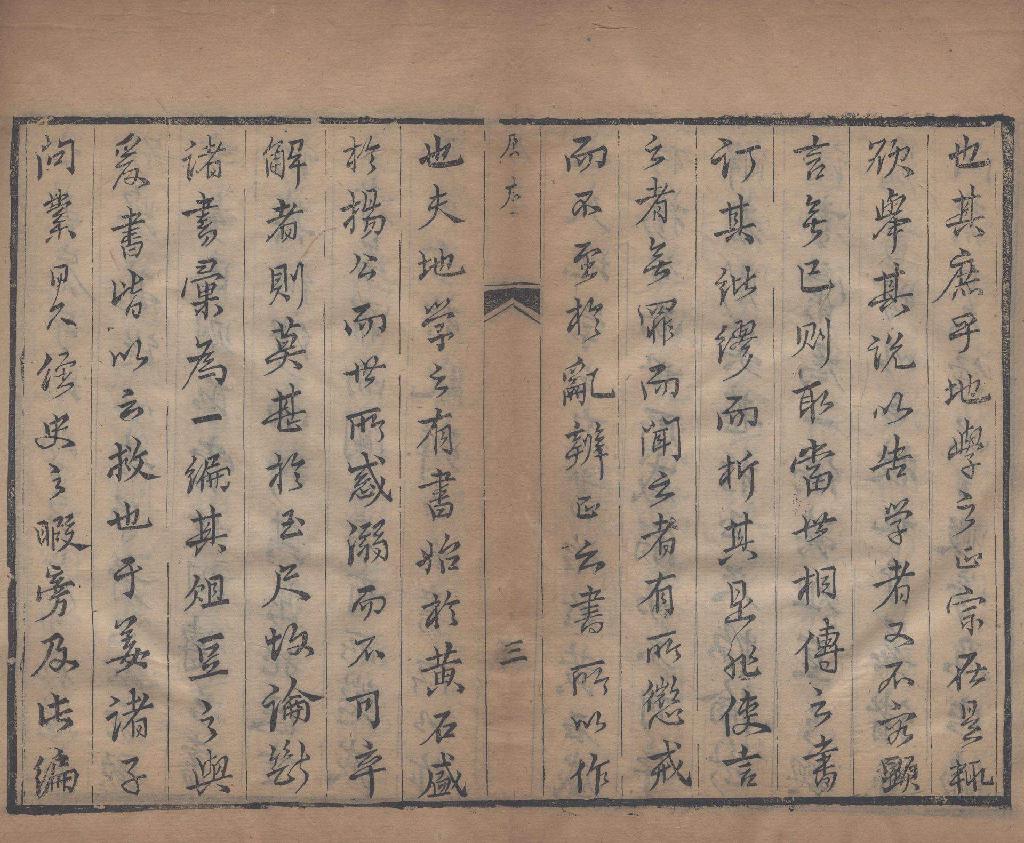 也其庶乎地學之正宗在是輒
欲舉其説以告学者又不容顯
言無已则取當世相傳之書
订其紕繆而析其是非使言
之者無罪而聞之者有所懲戒
而不至於亂辨正之書所以作
原序
三
也夫地学之有書始於黄石盛
於楊公而世所惑溺而不可卒
解者則莫甚於玉尺故論斷
諸書彙為一編其俎豆之與
爰書皆以云救也于姜諸子
问業日久經史之暇旁及此編